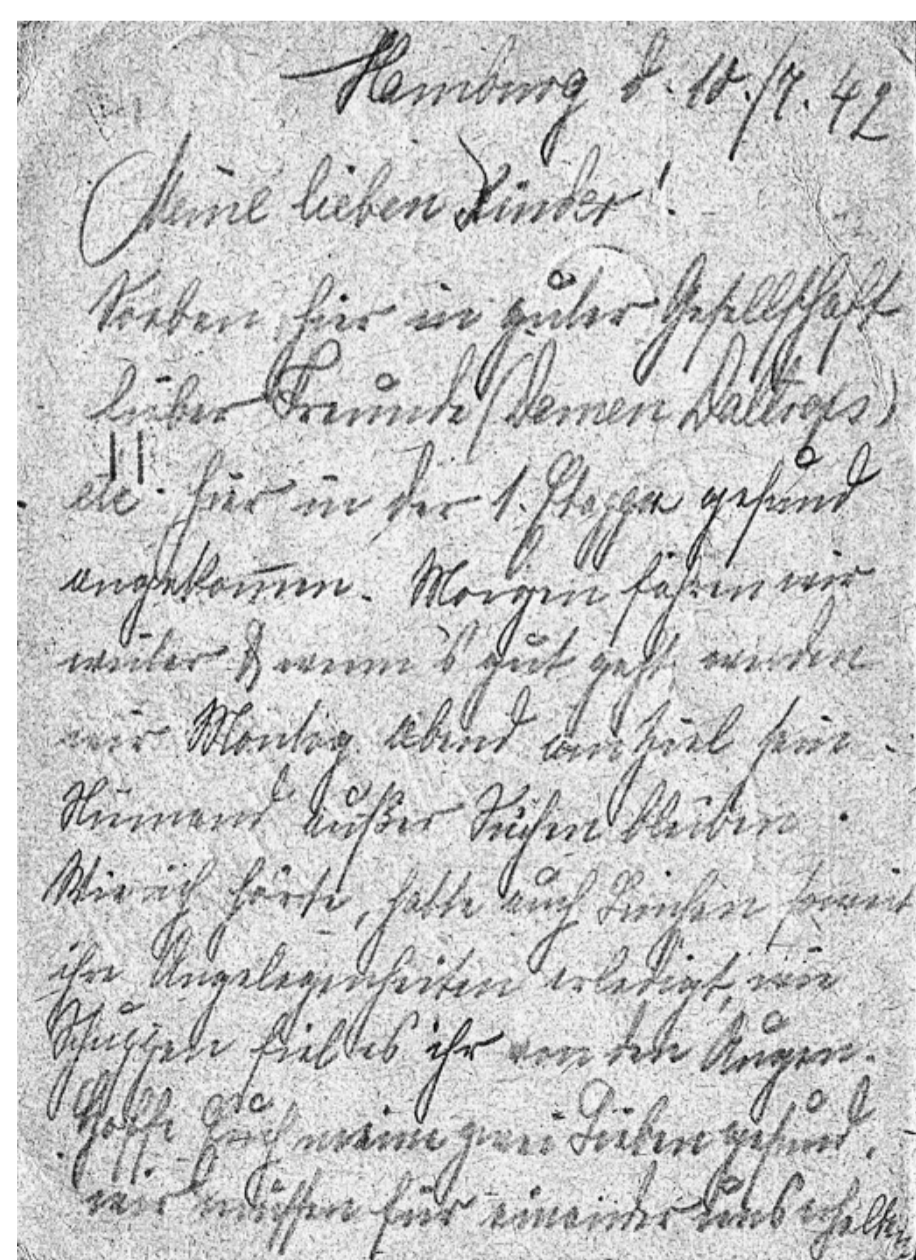 Hamburg d. 10./7. 42
Meine lieben Kinder!
Soeben hier in guter Gesellschaft
lieber Freunde (Damen Daltrops)
etc. hier in der 1. Etappe gesund
angekommen. Morgen fahren wir
weiter & wenn's gut geht werden
wir Montag Abend am Ziel sein.
Niemand außer bleiben.
Wie ich hörte, hatte auch soweit
ihre Angelegenheiten erledigt, wie
Schuppen fiel es ihr von den Augen.
Hoffe Euch meine zwei Lieben gesund.
wir müssen für einander uns erhalten